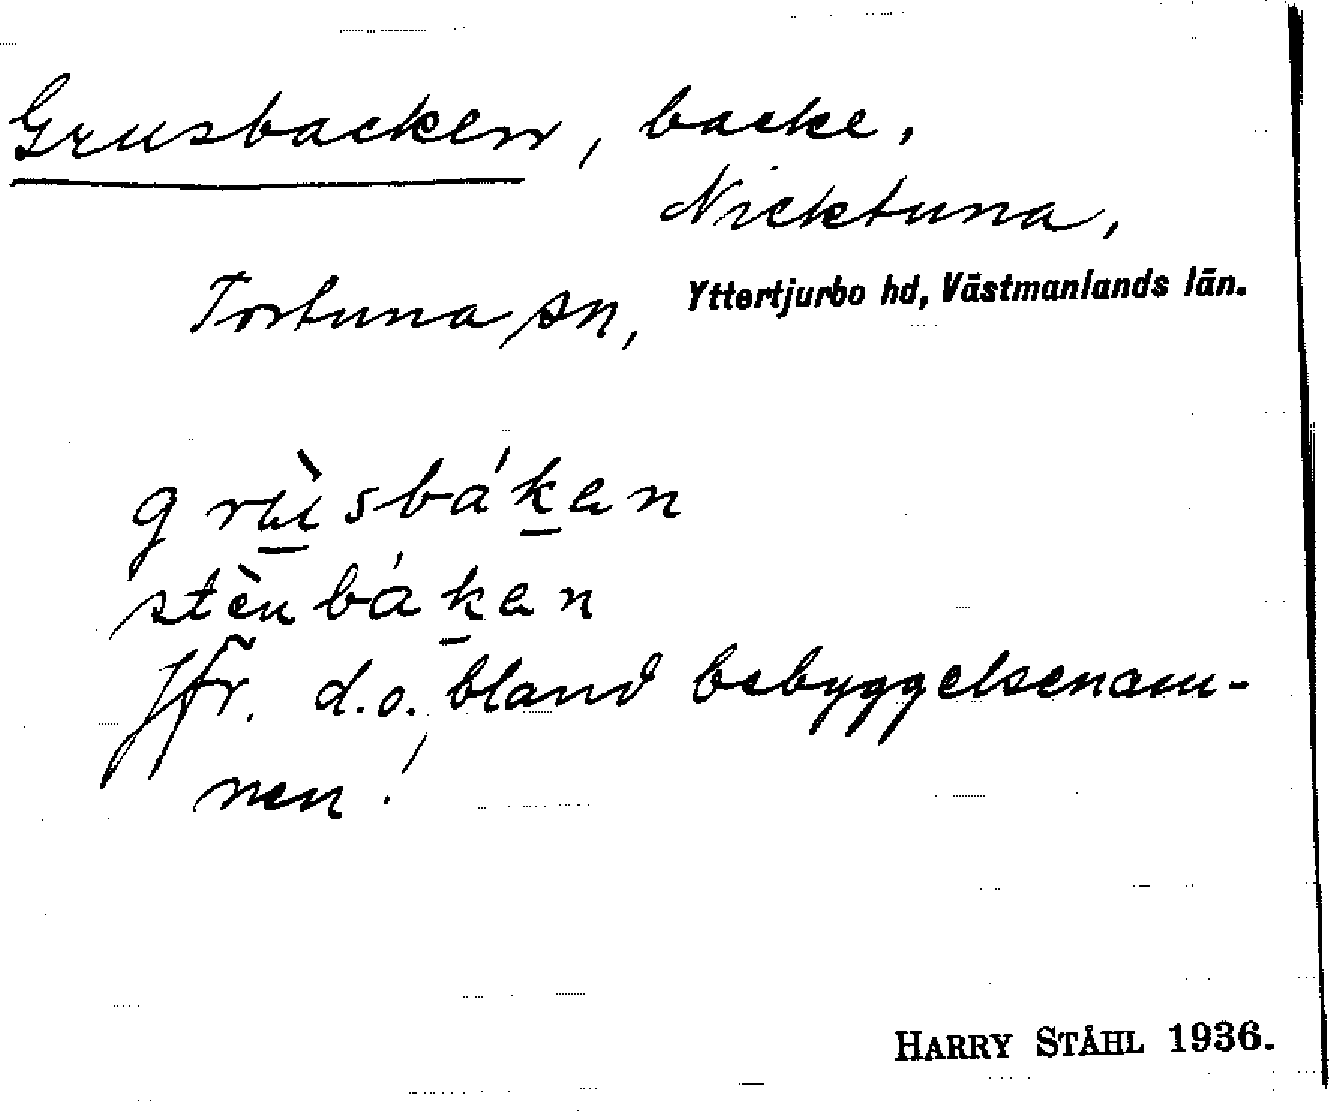 Grusbacken, backe,
Nicktuna,
Tortuna sn, Yttertjurbo hd, Västmanlands län.
grùsbákan
stènbákan
Jfr. d.o. bland bebyggelsenam-
nen!
HARRY STÅHL 1936.